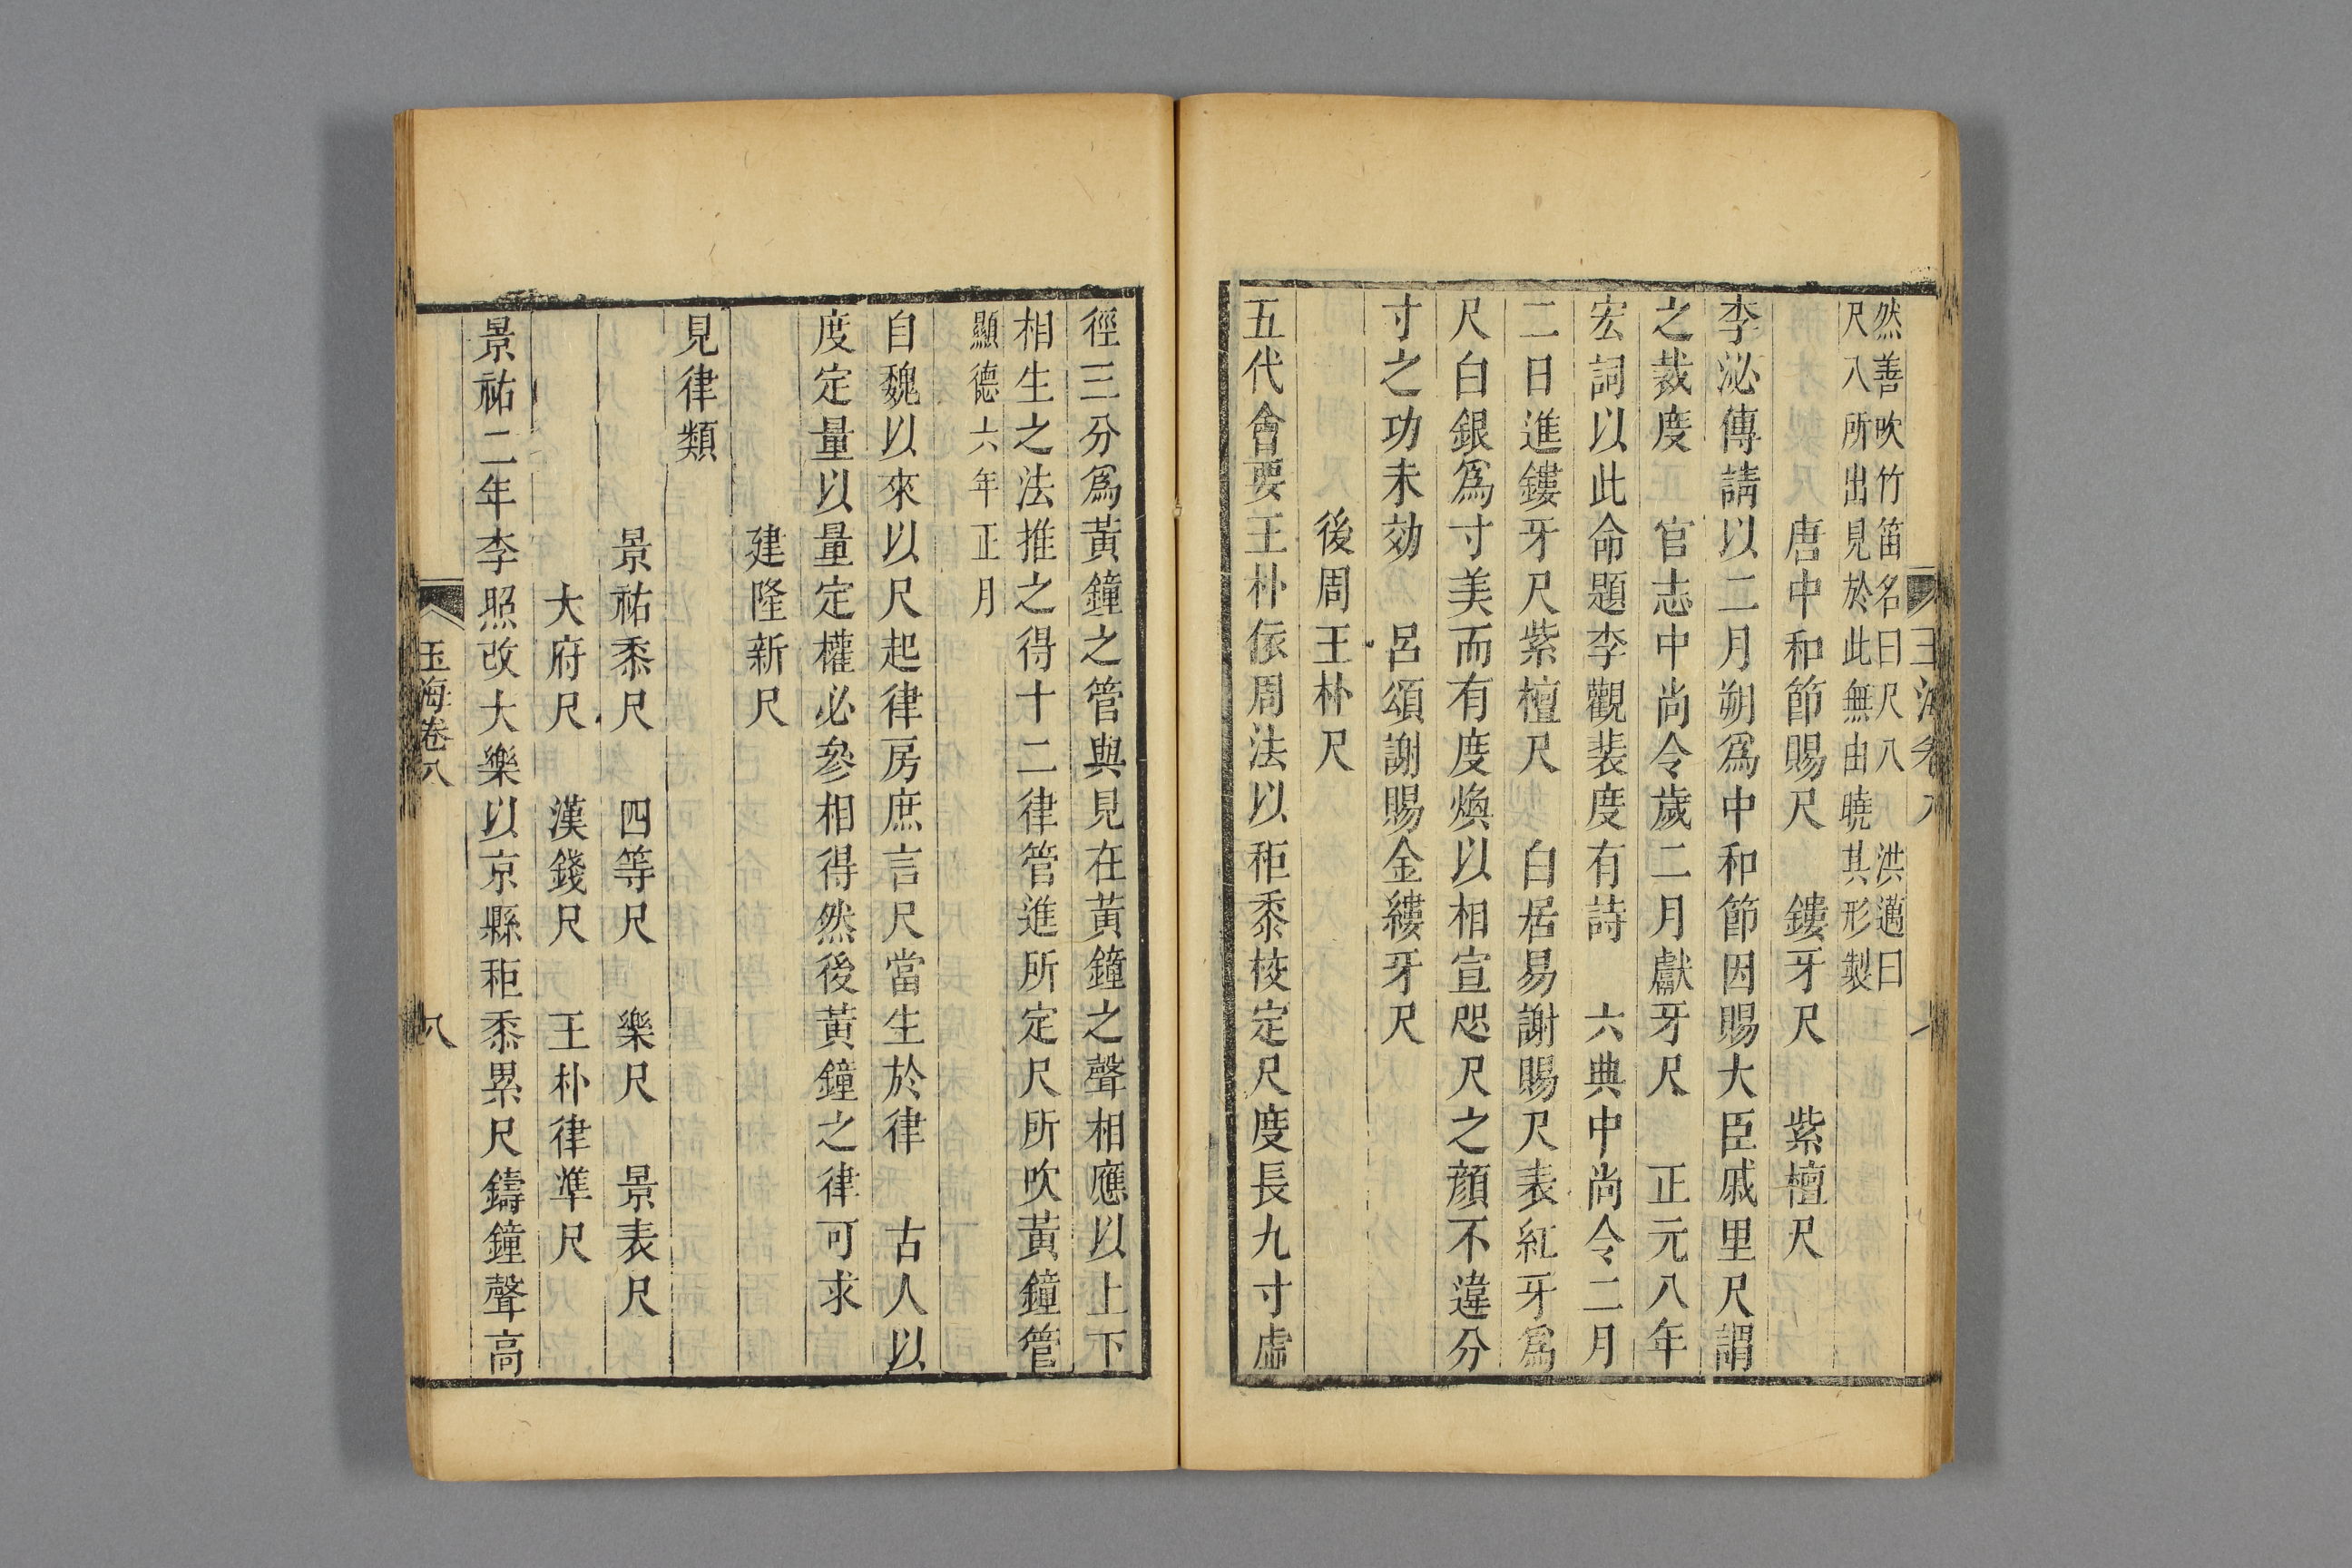 玉海卷八
然善吹竹笛名曰尺八 洪邁曰
尺八所出見於此無由曉其形製
唐中和節賜尺 鏤牙尺 紫檀尺
李泌傳請以二月朔爲中和節因賜大臣戚里尺謂
之裁度 官志中尚令歲二月獻牙尺 正元八年
宏詞以此命題李觀裴度有詩 六典中尚令二月
二日進鏤牙尺紫檀尺 白居易謝賜尺表紅牙爲
尺白銀爲寸美而有度煥以相宣咫尺之顔不違分
寸之功未効 呂頌謝賜金縷牙尺
後周王朴尺
五代會要王朴依周法以秬黍校定尺度長九寸虛
徑三分爲黃鐘之管與見在黃鐘之聲相應以上下
相生之法推之得十二律管進所定尺所吹黃鐘管
顯德六年正月
自魏以來以尺起律房庶言尺當生於律 古人以
度定量以量定權必參相得然後黃鐘之律可求
建隆新尺
見律類
景祐黍尺 四等尺 樂尺 景表尺
大府尺 漢錢尺 王朴律準尺
景祐二年李照改大樂以京縣秬黍累尺鑄鐘聲高
玉海卷八 八